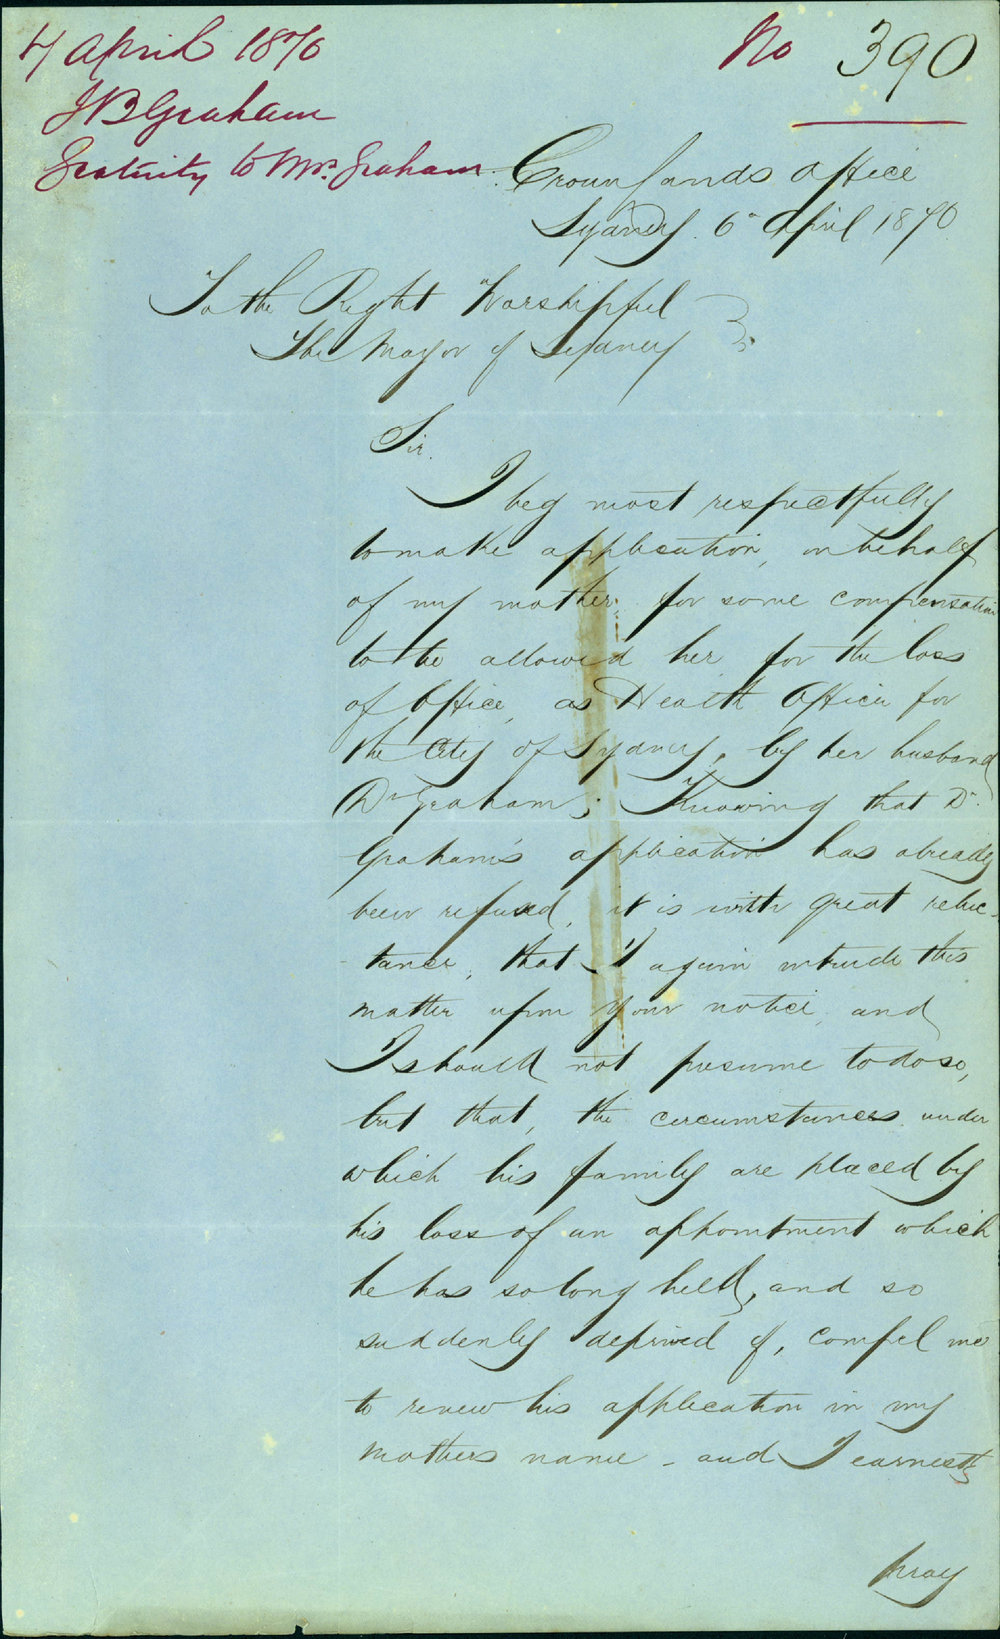 7 April 1870
No 390
J B Graham
Gratuity to Mrs. Graham
Crown Lands Office
Sydney 6 April 1870
To the Right Worshipful
The Mayor of Sydney
Sir.
I beg most respectfully
to make application, on behalf
of my mother, for some compensation
to be allowed her, for the loss
of Office, as Health Officer for
the City of Sydney, by her husband
Dr Graham; Knowing that Dr.
Graham's application has already
been refused, it is with great reluc-
tance, that I again intrude this
matter upon your notice, and
I should not presume to do so,
but that, the circumstances under
which his family are placed by
his loss of an appointment which
he has so long held, and so
suddenly deprived of, compel me
to renew his application in my
mothers name - and I earnestly
pray